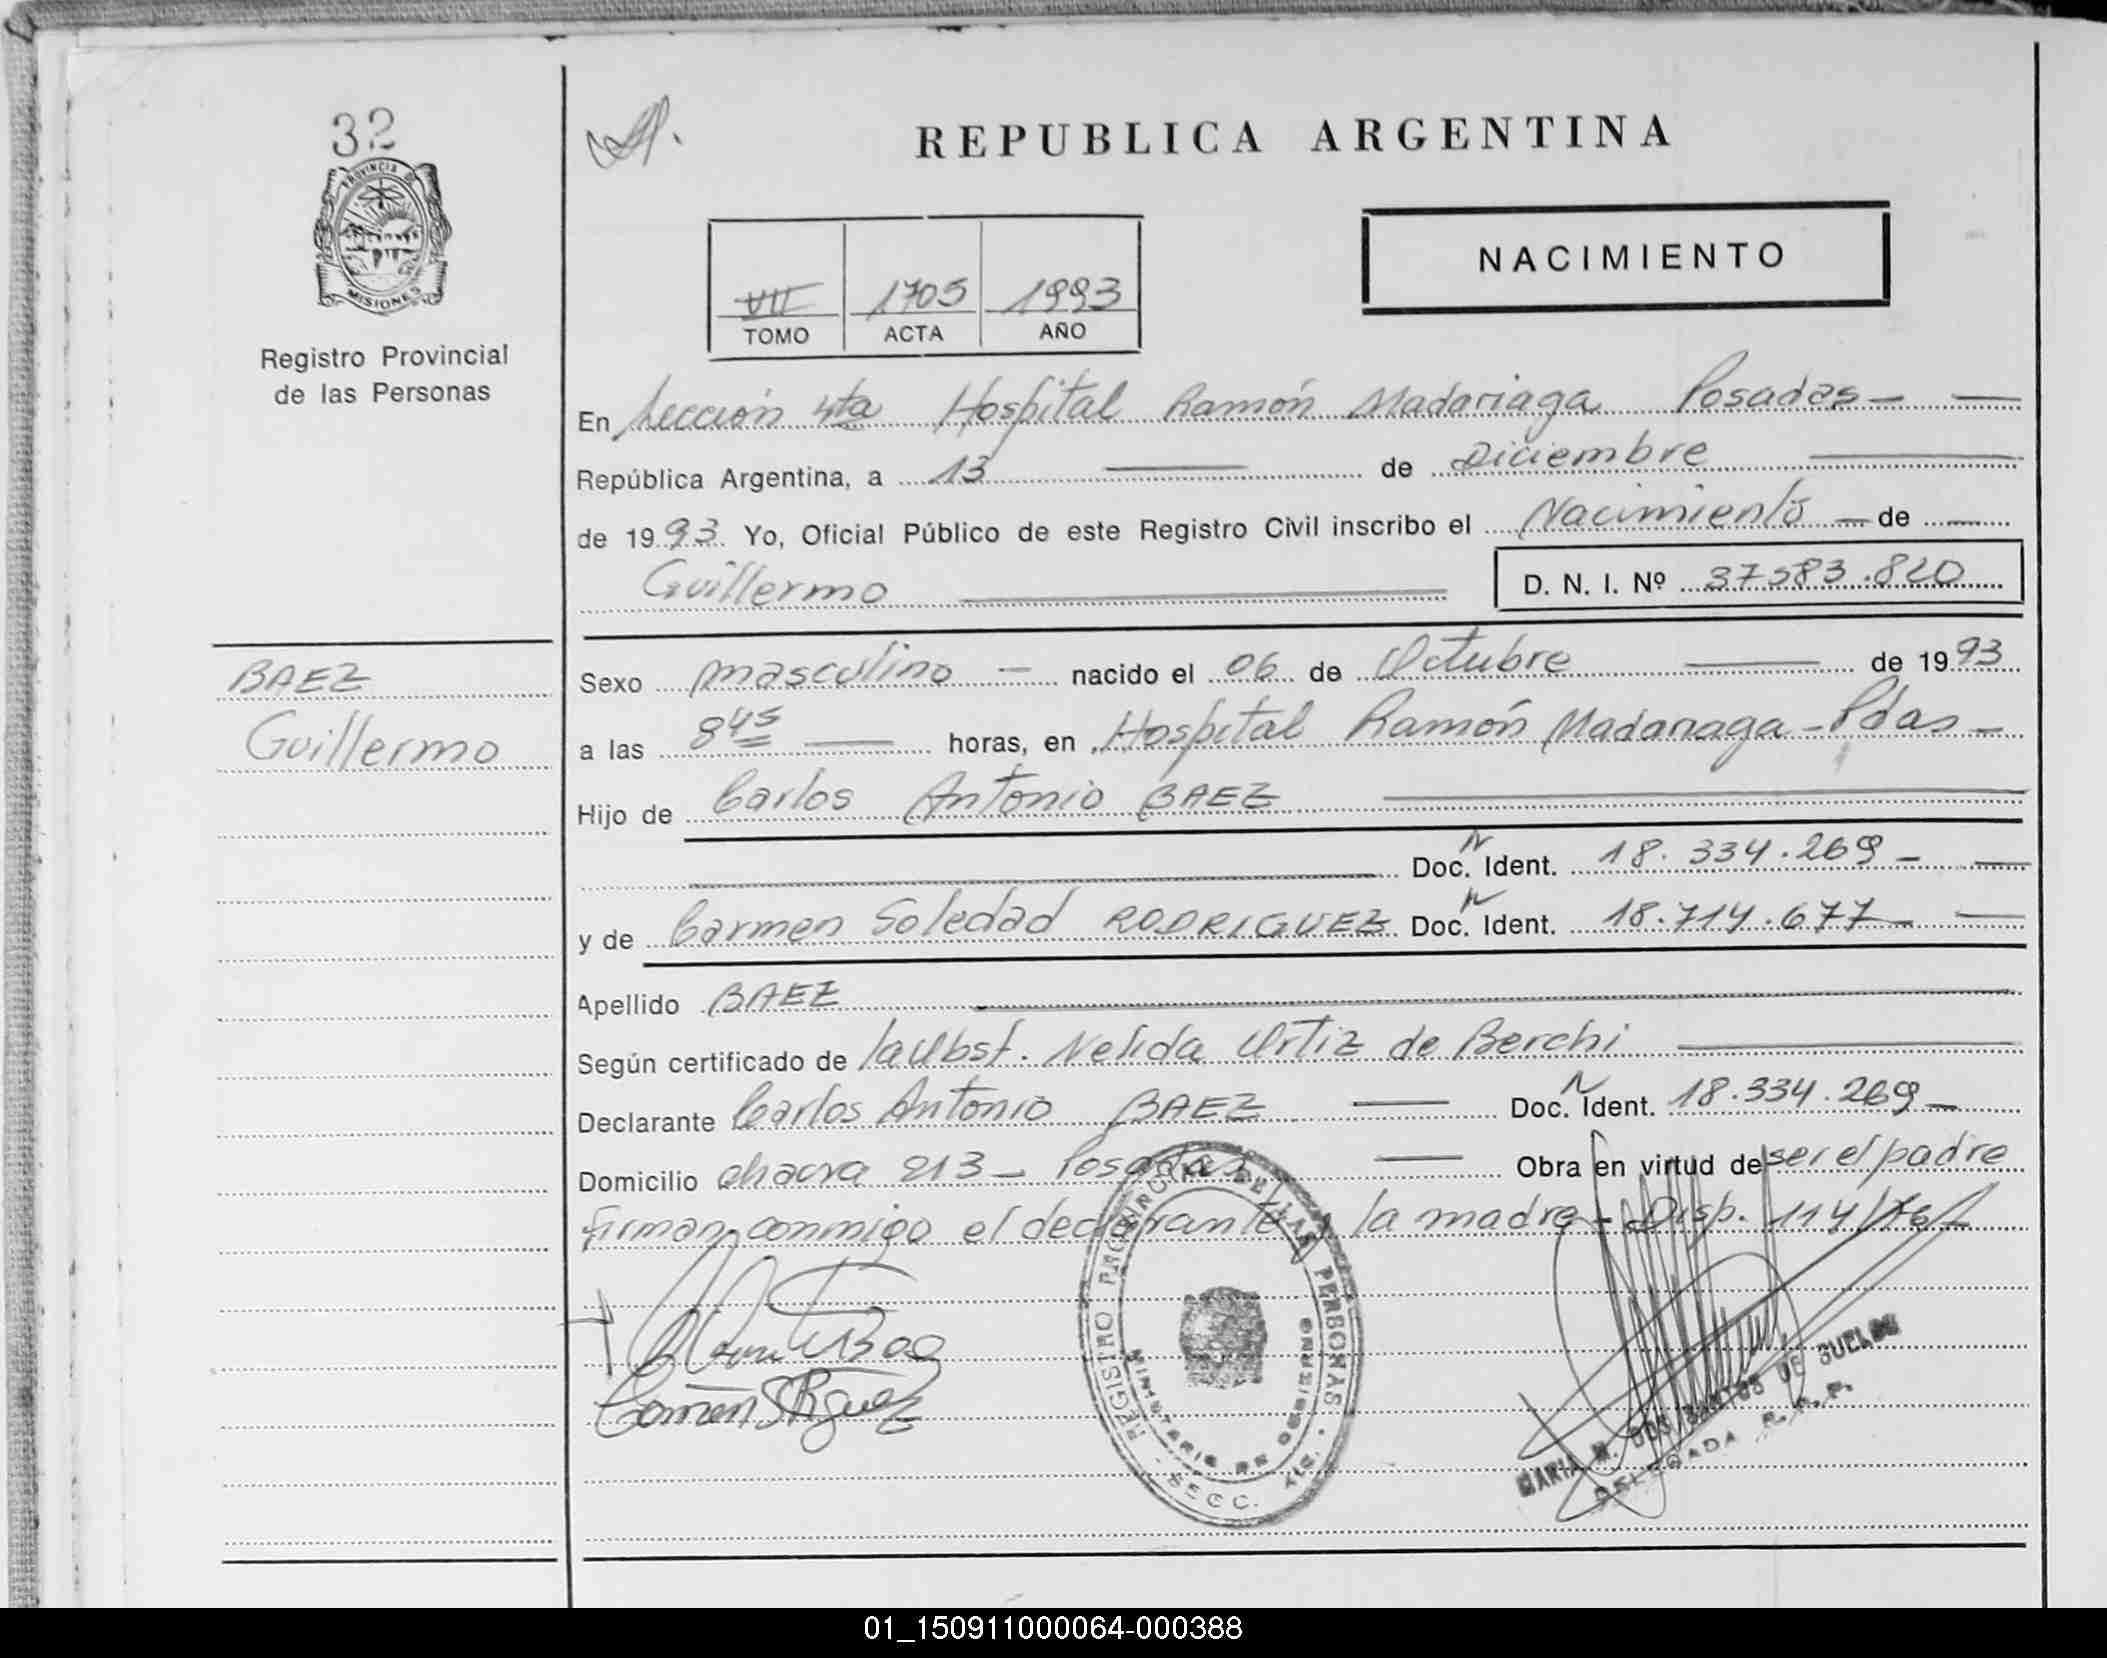 32
PROVINCIA DE
MISIONES
Registro Provincial
de las Personas
BAEZ
Guillermo
REPUBLICA ARGENTINA
NACIMIENTO
VII 1705 1993
TOMO ACTA AÑO
En Sección 4ta Hospital Ramón Madariaga Posadas —
República Argentina, a 13 — de Diciembre —
de 1993 Yo, Oficial Público de este Registro Civil inscribo el Nacimiento — de —
Guillermo — D. N. I. Nº 37583.820
Sexo masculino — nacido el 06 de Octubre — de 1993
a las 8 45 — horas, en Hospital Ramón Madariaga - Pdas -
Hijo de Carlos Antonio BAEZ —
Doc. N Ident. 18.334.269 - —
y de Carmen Soledad RODRIGUEZ Doc. N Ident. 18.714.677 - —
Apellido BAEZ —
Según certificado de la Obst. Nelida Ortiz de Berchi —
Declarante Carlos Antonio BAEZ — Doc. N Ident. 18.334.269 -
Domicilio chacra 213 - Posadas — Obra en virtud de ser el padre
firman conmigo el declarante y la madre - Disp. 114/76
REGISTRO PROVINCIAL DE LAS PERSONAS
MINISTERIO DE GOBIERNO
SECC. 4ta.
MARIA M. DOS SANTOS DE SUELDO
DELEGADA R. P. P.
01_150911000064-000388